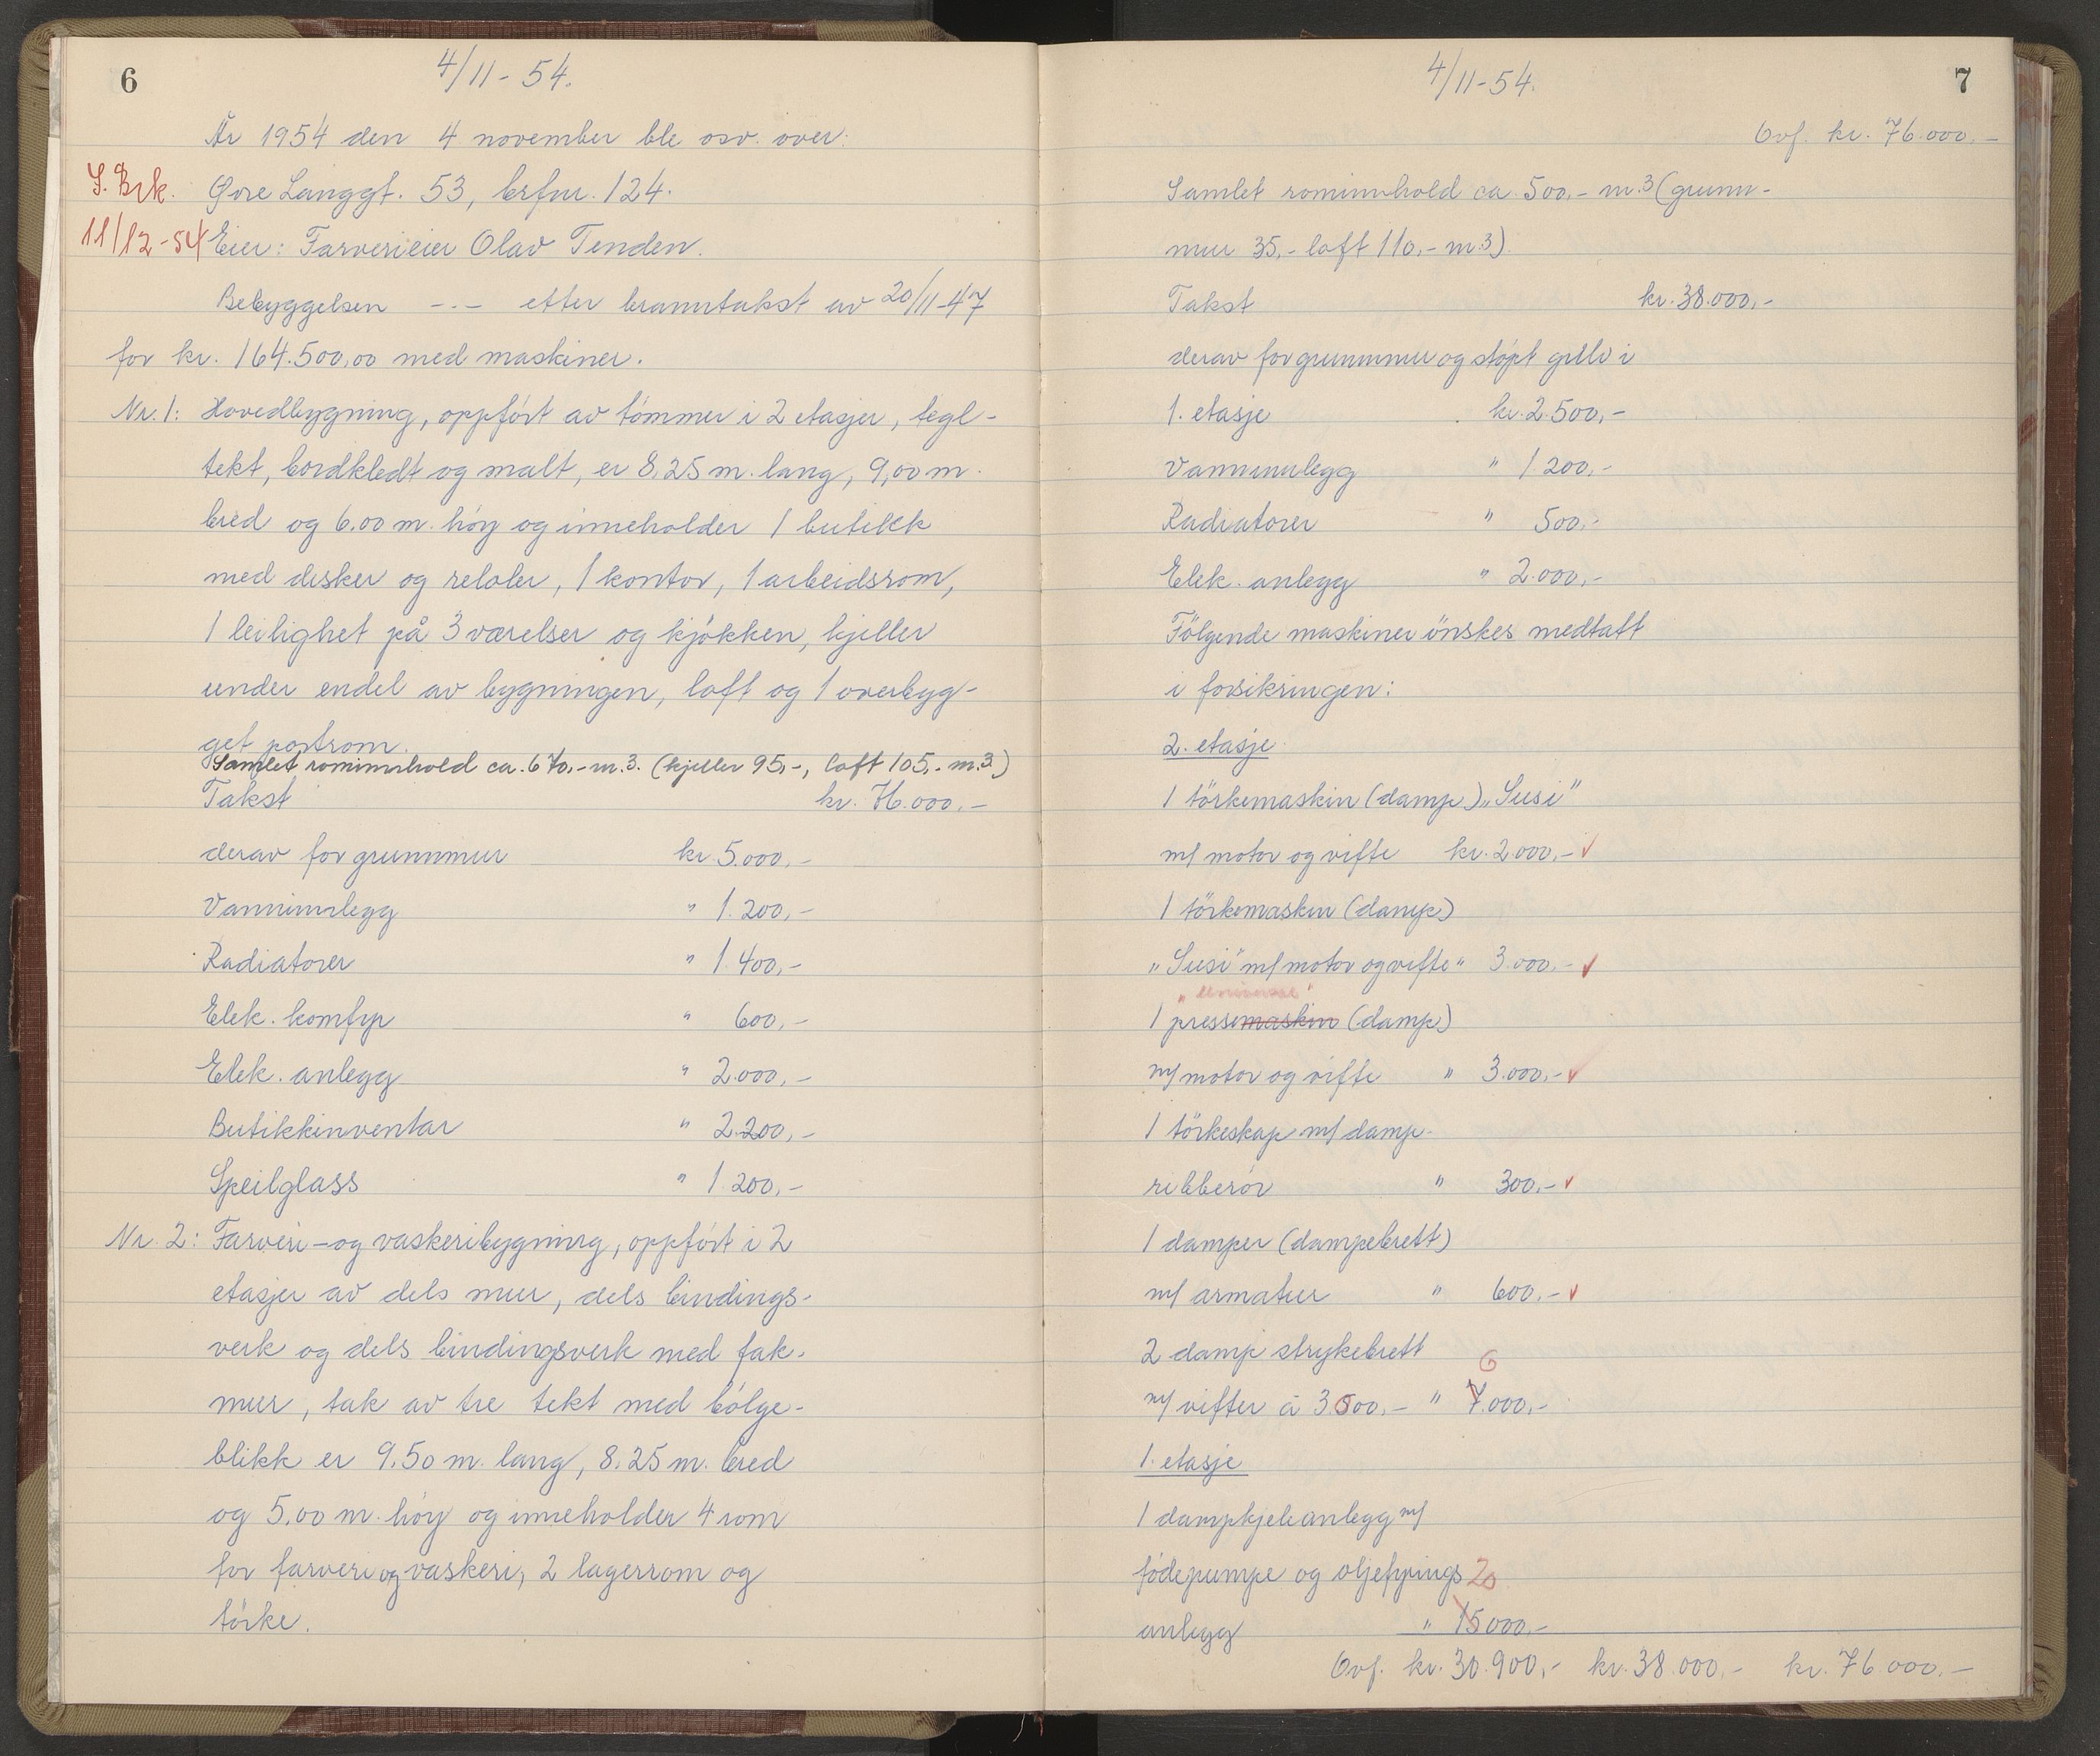 6
4/11-54.
År 1954 den 4 november ble osv. over:
S. Brk. Øvre Langgt. 53, brfnr. 124.
11/12-54 Eier: Farverieier Olav Tenden.
Bebyggelsen -.- etter branntakst av 20/11-47
for kr. 164.500,00 med maskiner.
Nr. 1: Hovedbygning, oppført av tømmer i 2 etasjer, tegl-
tekt, bordkledt og malt, er 8,25 m. lang, 9,00 m.
bred og 6.00 m. høy og inneholder 1 butikk
med disker og reloler, 1 kontor, 1 arbeidsrom,
1 leilighet på 3 værelser og kjøkken, kjeller
under endel av bygningen, loft og 1 overbyg-
get portrom.
Samlet rominnhold ca. 670,- m.3. (kjeller 95,-, loft 105,- m.3)
Takst kr. 76.000,-
derav for grunnmur kr. 5.000,-
Vanninnlegg " 1.200,-
Radiatorer " 1.400,-
Elek. komfyr " 600,-
Elek. anlegg " 2.000,-
Butikkinventar " 2.200,-
Speilglass " 1.200,-
Nr. 2: Farveri- og vaskeribygning, oppført i 2
etasjer av dels mur, dels bindings-
verk og dels bindingsverk med fak-
mur, tak av tre tekt med bølge-
blikk er 9.50 m. lang, 8.25 m. bred
og 5.00 m. høy og inneholder 4 rom
for farveri og vaskeri, 2 lagerrom og
tørke.
4/11-54.
7
Ovf. kr. 76.000,-
Samlet rominnhold ca. 500,- m.3 (grunn-
mur 35,- loft 110,- m.3).
Takst kr. 38.000,-
derav for grunnmur og støpt gulv i
1. etasje kr. 2.500,-
Vanninnlegg " 1.200,-
Radiatorer " 500,-
Elek. anlegg " 2.000,-
Følgende maskiner ønskes medtatt
i forsikringen:
2. etasje
1 tørkemaskin (damp) „Susi"
m/ motor og vifte kr. 2.000,- ✓
1 tørkemaskin (damp)
„Susi" m/ motor og vifte " 3.000,- ✓
„Universal"
1 pressemaskin (damp)
m/ motor og vifte " 3.000,- ✓
1 tørkeskap m/ damp-
ribberør " 300,- ✓
1 damper (dampebrett)
m/ armatur " 600,- ✓
2 damp strykebrett
6
m/ vifter á 3500,- " 7.000,-
1. etasje
1 dampkjeleanlegg m/
fødepumpe og oljefyrings 20
anlegg " 15000,-
Ovf. kr. 30.900,- kr. 38.000,- kr. 76.000,-